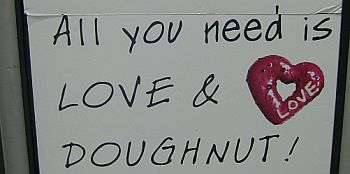 All you need is
LOVE & LOVE
DOUGHNUT!